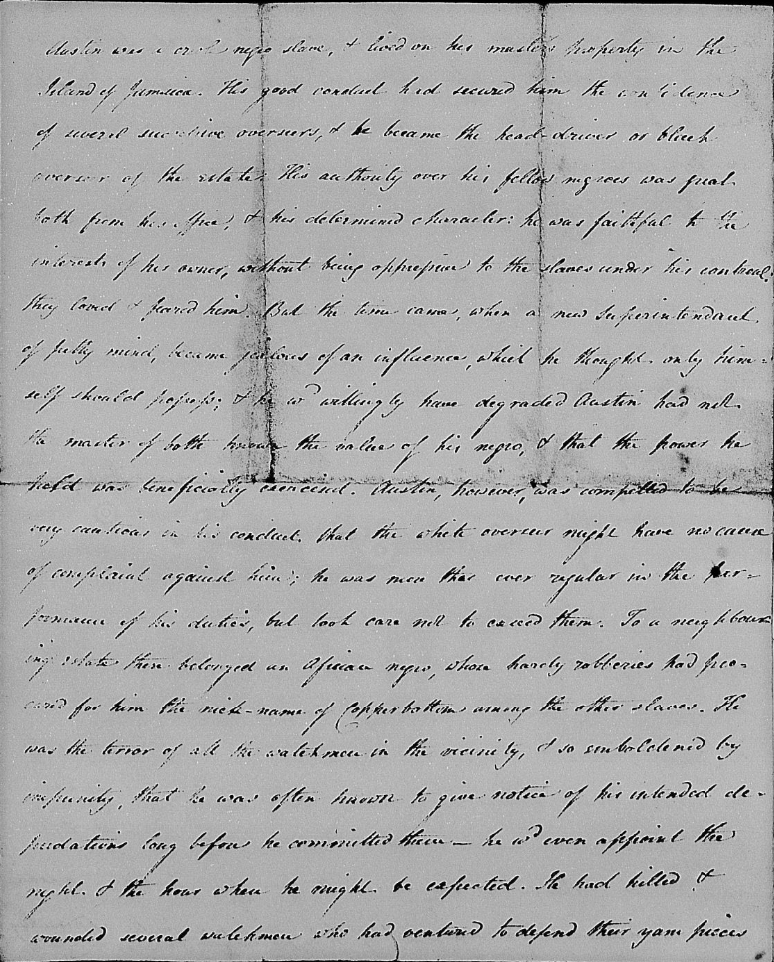 Austin was a creole negro slave, & lived on his master's property in the
Island of Jamaica. His good conduct had secured him the confidence
of several successive overseers, & he became the head-driver or black
overseer of the estate. His authority over his fellow negroes was great
both from his office, & his determined character: he was faithful to the
interests of his owner, without being oppressive to the slaves under his controul:
they loved & feared him. But the time came, when a new Superintendant
of petty mind, became jealous of an influence, which he thought only him-
self should possess; & he wd willingly have degraded Austin had not
the master of both known the value of his negro, & that the power he
held was beneficially exercised. Austin, however, was compelled to be
very cautious in his conduct that the white overseer might have no cause
of complaint against him; he was more than ever regular in the per-
formance of his duties, but took care not to exceed them. To a neighbour-
ing estate there belonged an African negro, whose hardy robberies had pro-
cured for him the nick-name of Copperbottom among the other slaves. He
was the terror of all the watchmen in the vicinity, & so emboldened by
impunity, that he was often known to give notice of his intended de-
predations long before he committed them — he wd even appoint the
night & the hour when he might be expected. He had killed &
wounded several watchmen who had ventured to defend their yam pieces